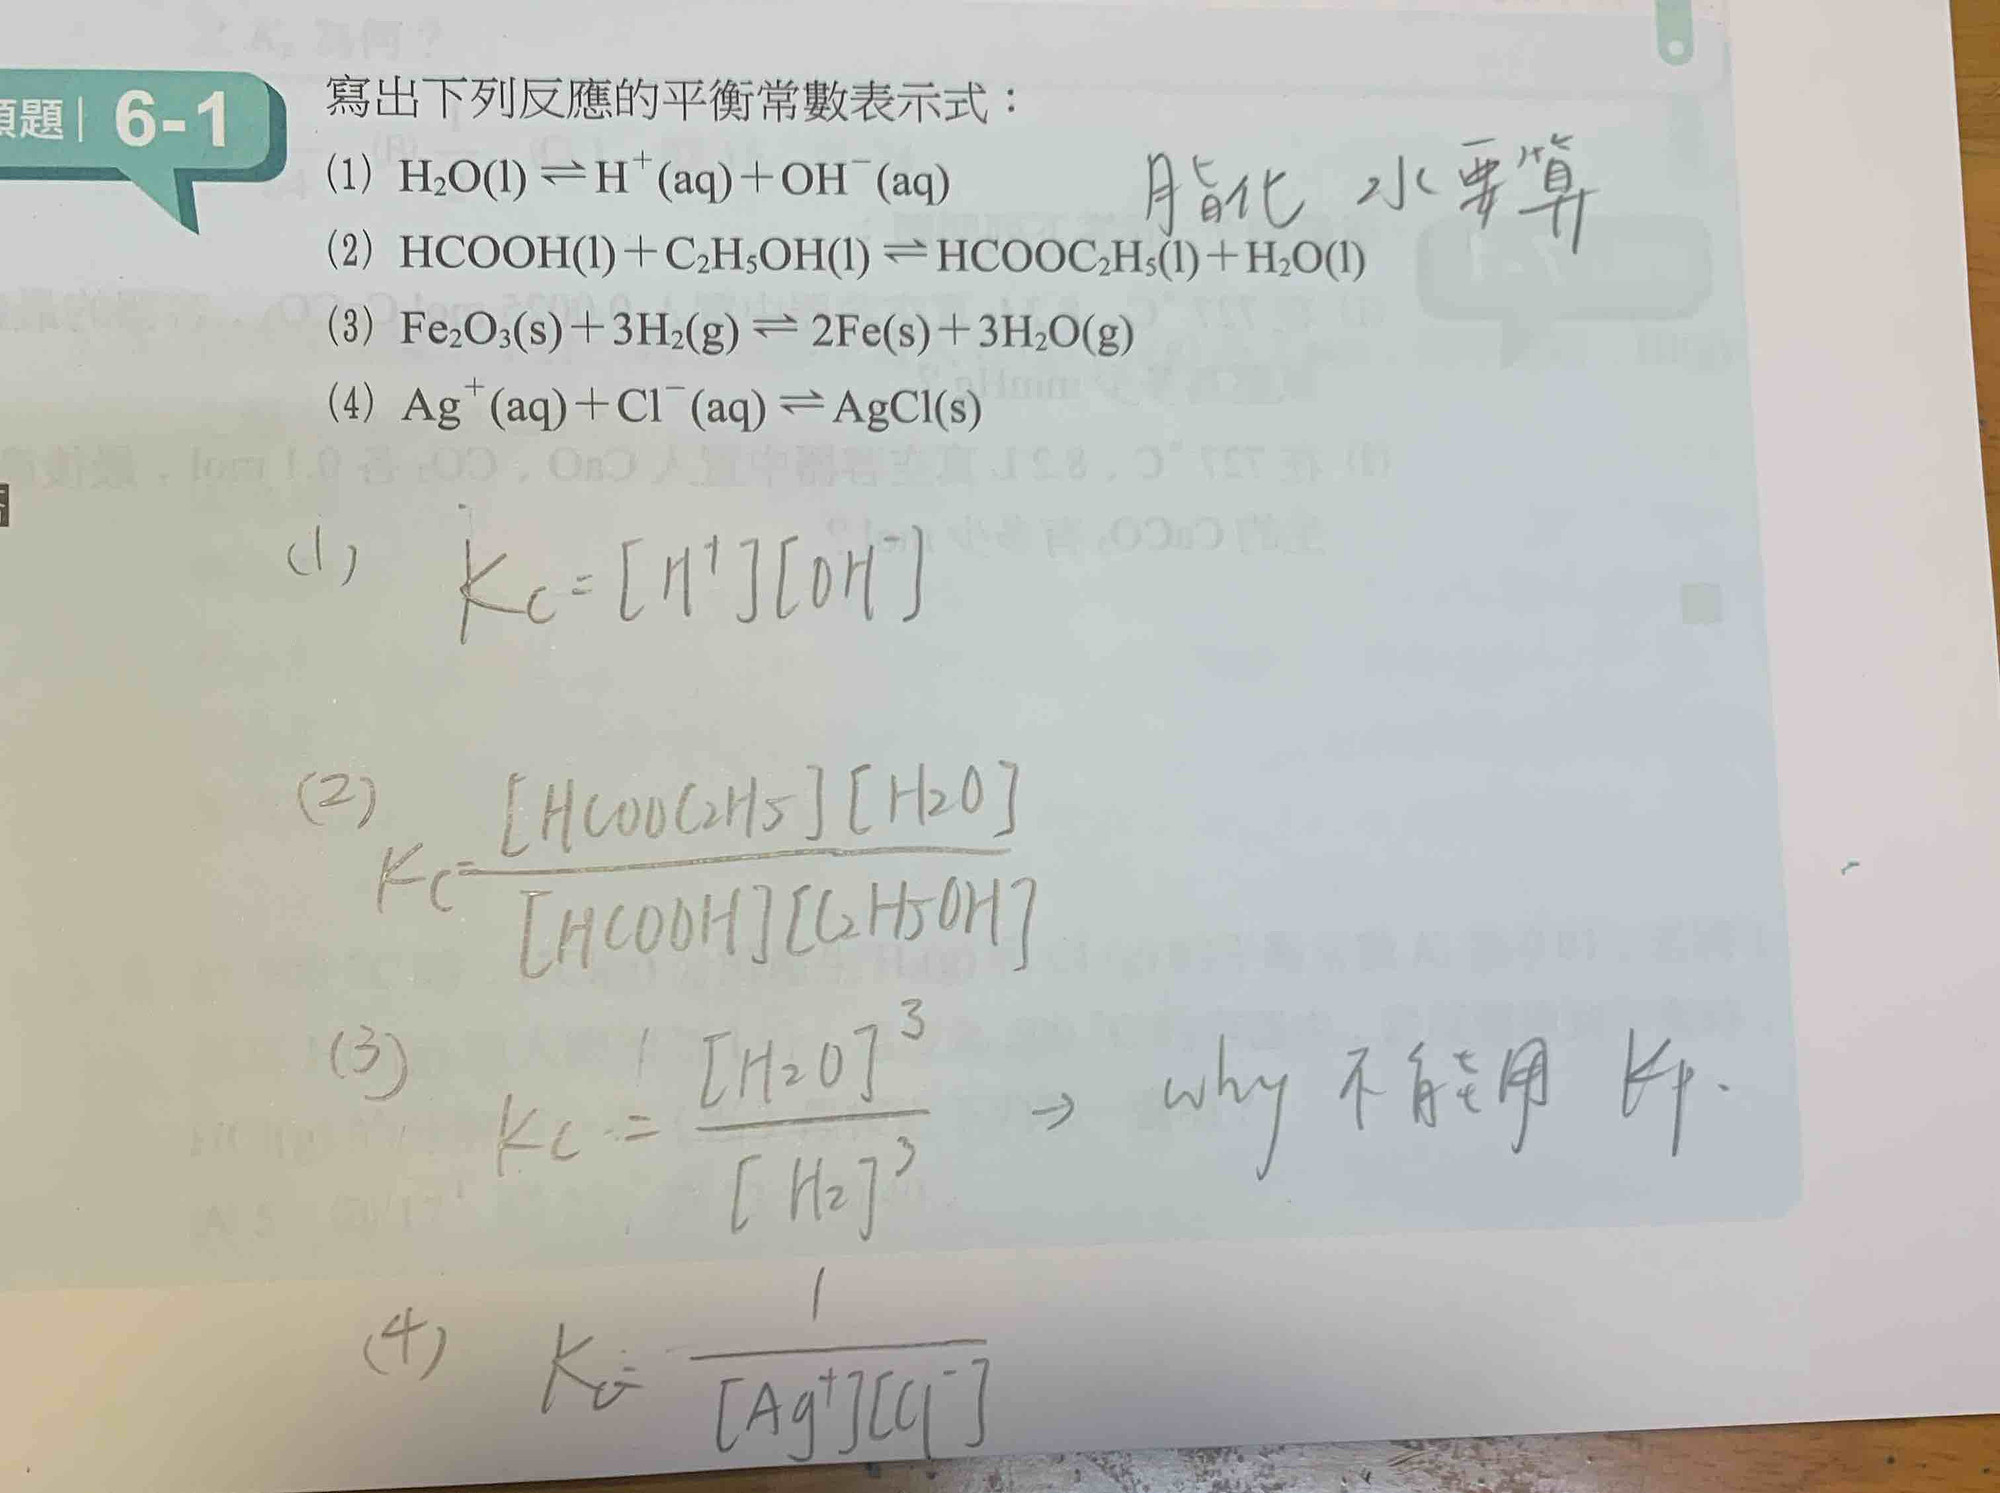 題| 6-1
寫出下列反應的平衡常數表示式：
(1) H₂O(l) ⇌ H⁺(aq)+OH⁻(aq)
脂化 水要算
(2) HCOOH(l)+C₂H₅OH(l) ⇌ HCOOC₂H₅(l)+H₂O(l)
(3) Fe₂O₃(s)+3H₂(g) ⇌ 2Fe(s)+3H₂O(g)
(4) Ag⁺(aq)+Cl⁻(aq) ⇌ AgCl(s)
(1) Kc=[H⁺][OH⁻]
(2) Kc= [HCOOC₂H₅][H₂O]
[HCOOH][C₂H₅OH]
(3) Kc = [H₂O]³ → why 不能用 Kp.
[H₂]³
(4) Kc= 1
[Ag⁺][Cl⁻]